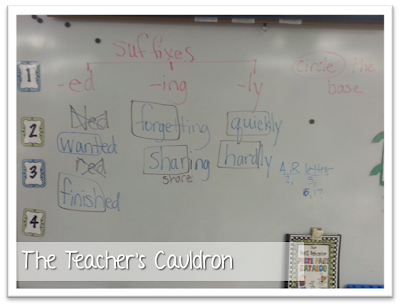 suffixes
-ed -ing -ly
circle the
base
1
Ned forgetting quickly
2
wanted
3
red sharing hardly
share
finished
4
A.R. letter
The Teacher's Cauldron